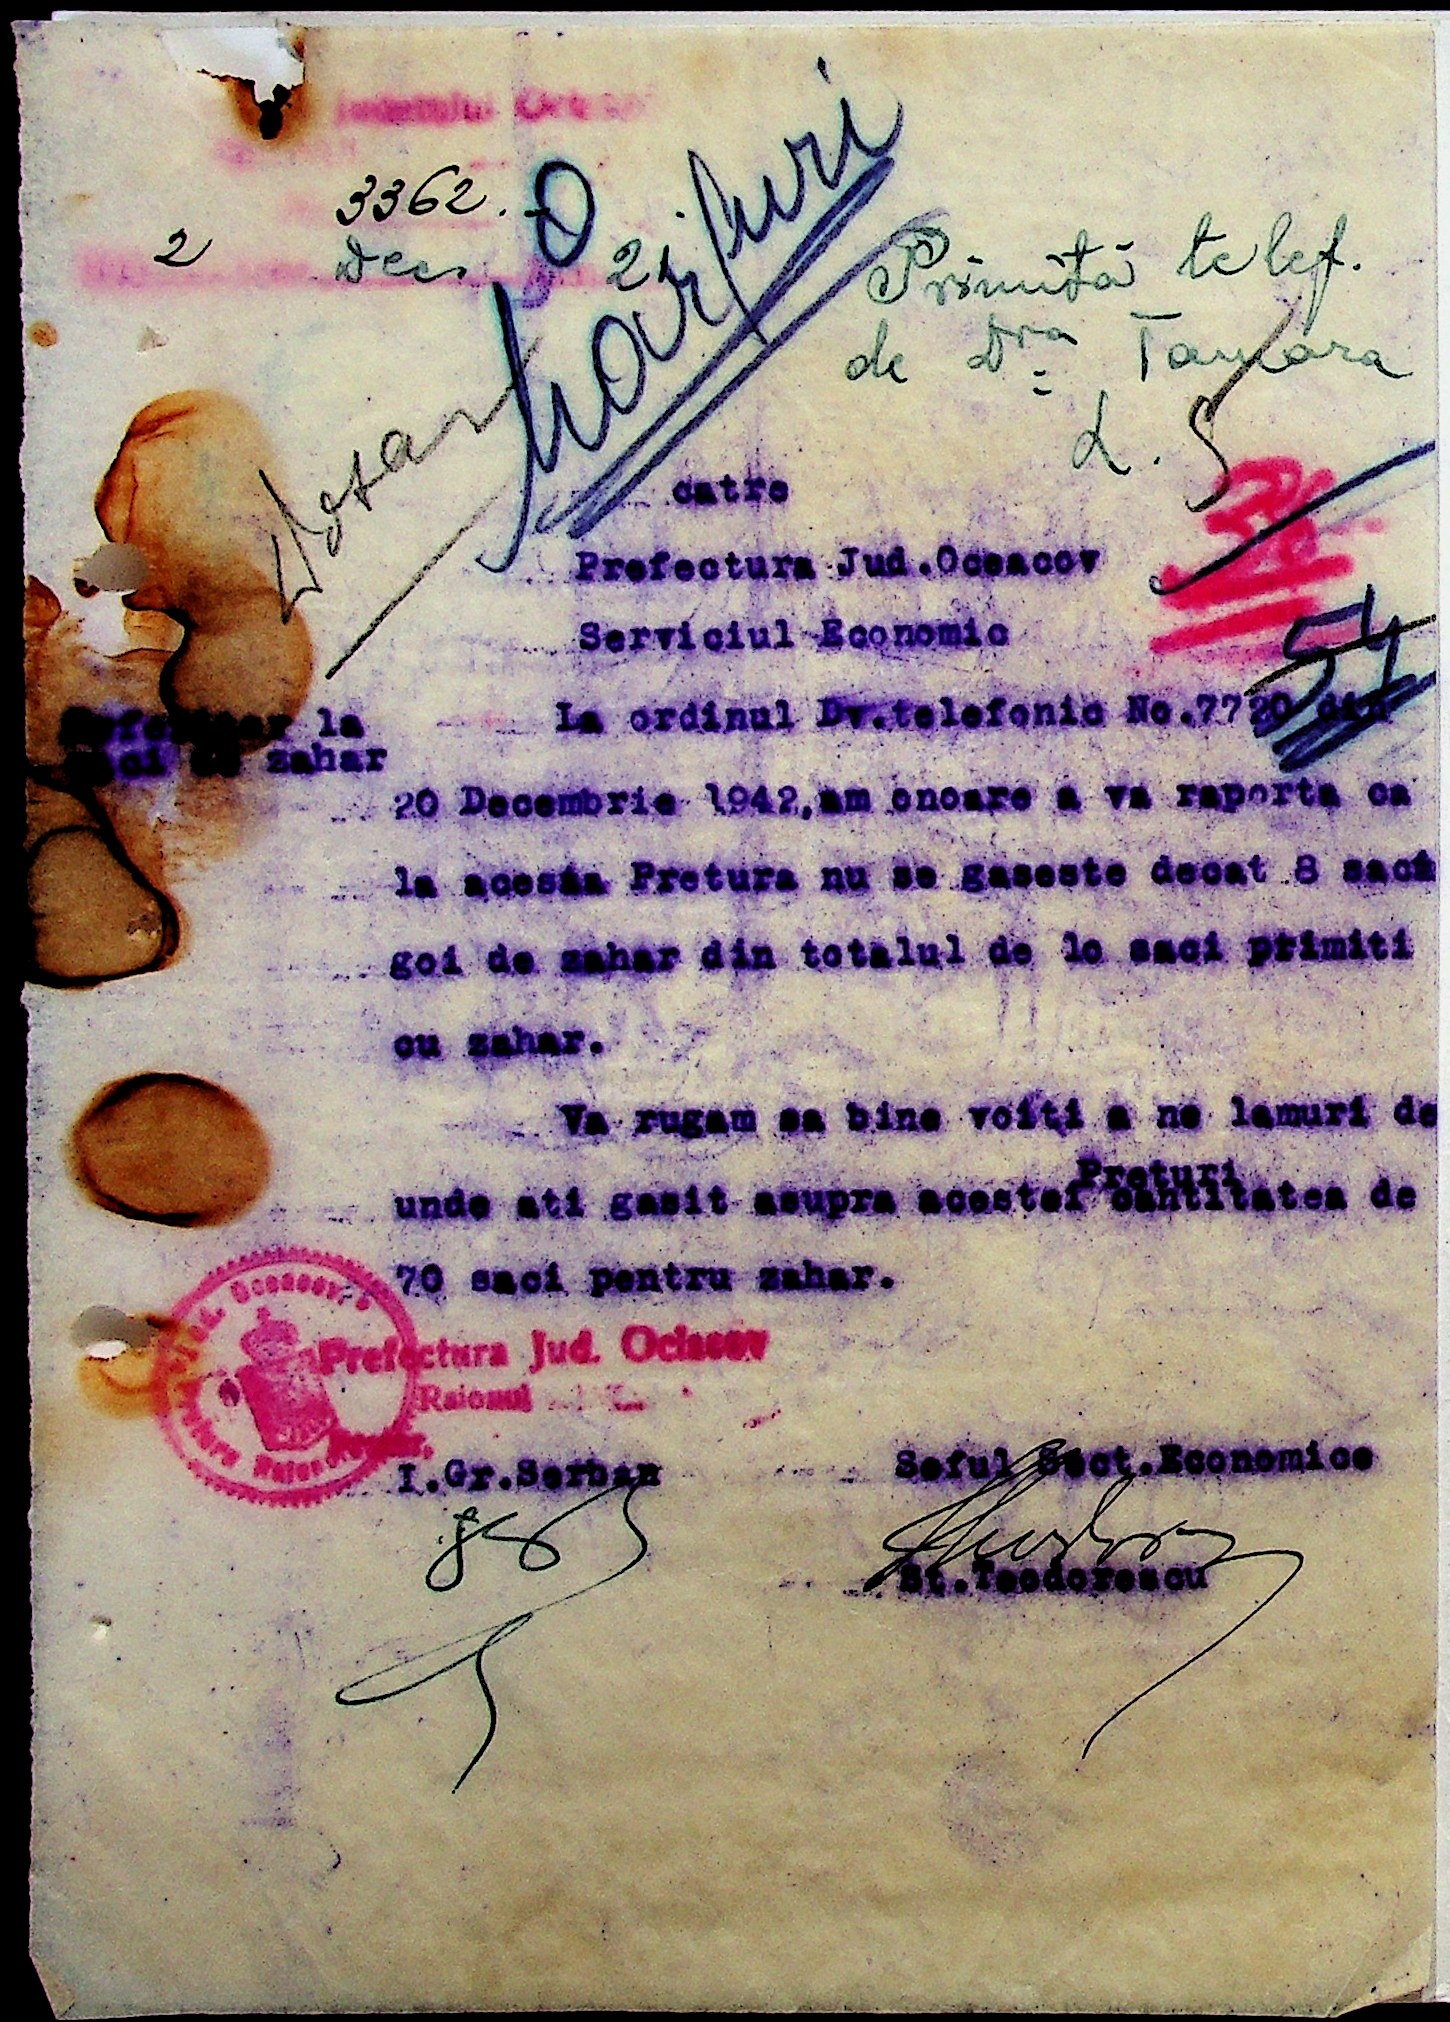 3362.
2 Dec 2
Primită telef.
de Dra Tamara
Dosar
catre
Prefectura Jud.Oceacov
Serviciul Economic
54
la La ordinul Dv.telefonic No.7720 din
saci de zahar
20 Decembrie 1942,am onoare a va raporta ca
la acesta Pretura nu se gaseste decat 8 saci
goi de zahar din totalul de lo saci primiti
cu zahar.
Va rugam sa bine voiti a ne lamuri de
Preturi
unde ati gasit asupra acestei cantitatea de
70 saci pentru zahar.
Prefectura Jud. Ociacov
Raionul
I.Gr.Serban Seful Sect.Economice
St.Teodorescu